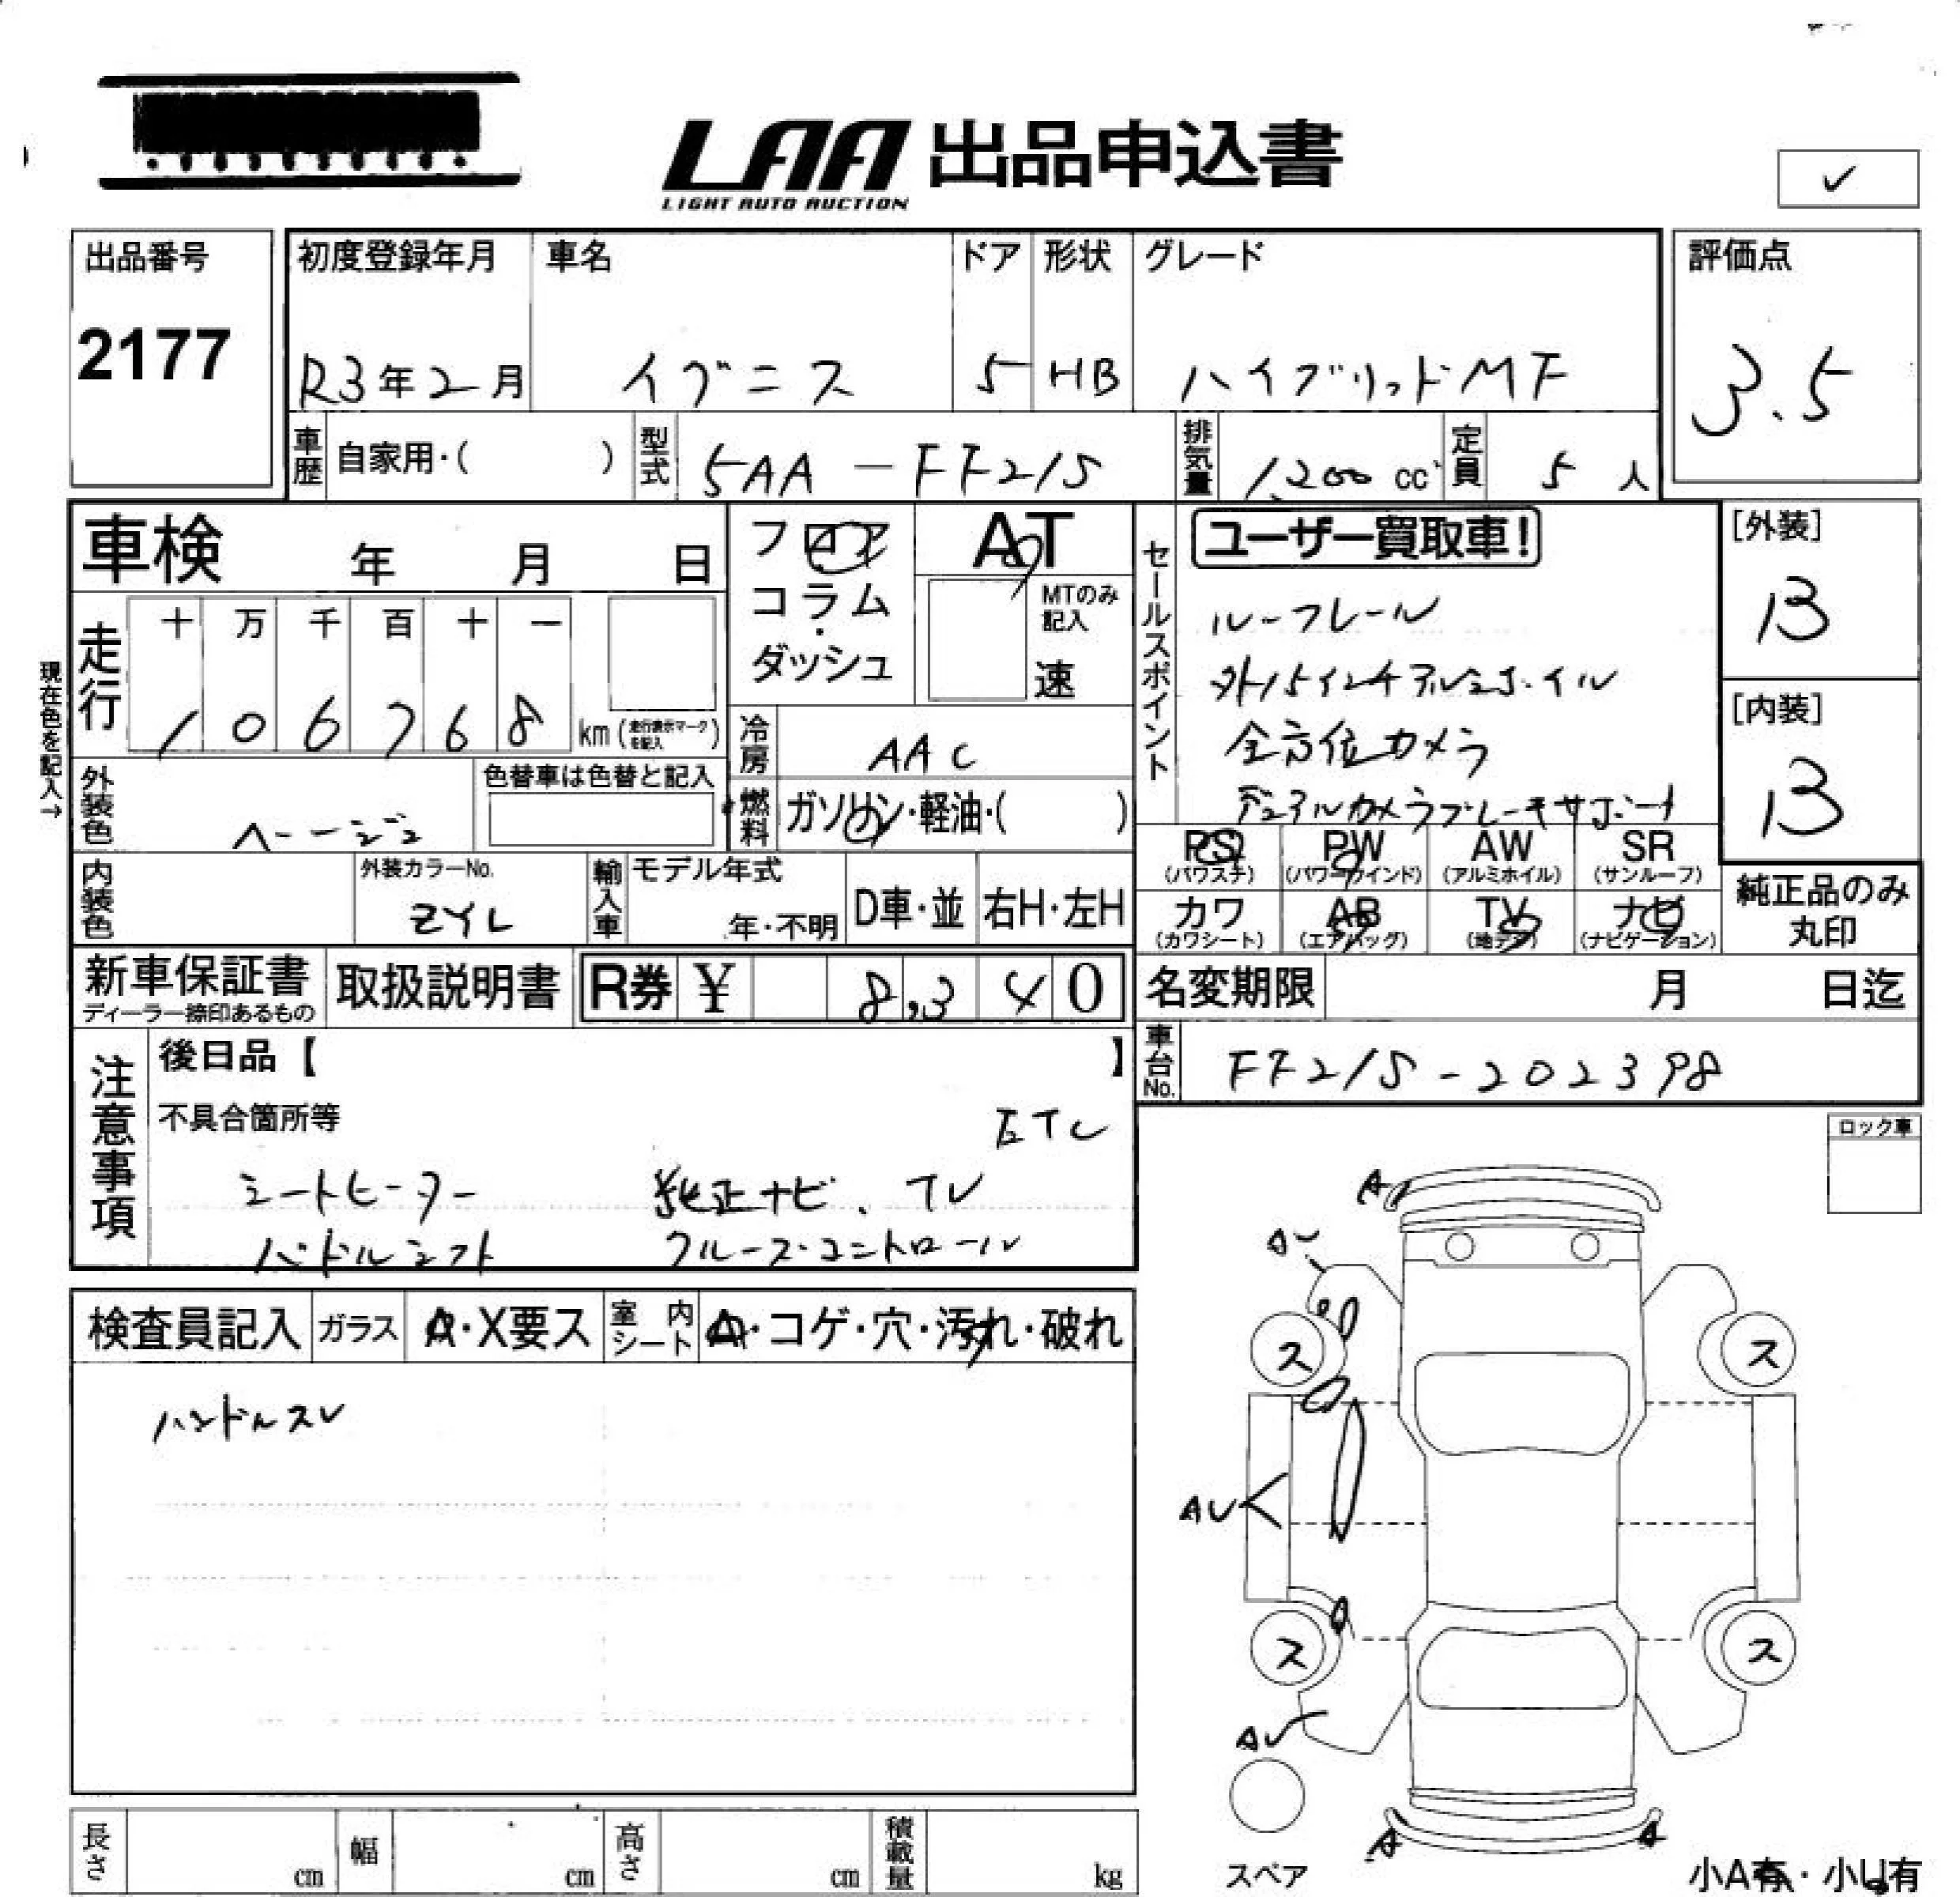 LAA 出品申込書
LIGHT AUTO AUCTION
✓
出品番号
2177
初度登録年月
R3年2月
車名
イグニス
ドア
5
形状
HB
グレード
ハイブリッドMF
評価点
3.5
車歴 自家用・( )
型式 5AA-FF21S
排気量 1,200 cc
定員 5 人
車検 年 月 日
フロア
コラム
・
ダッシュ
AT
MTのみ記入
速
現在色を記入→
走行
十 万 千 百 十 一
1 0 6 7 6 8 km(走行表示マークを記入)
冷房 AAC
燃料 ガソリン・軽油・( )
外装色 ベージュ
色替車は色替と記入
内装色
外装カラーNo.
ZYL
輸入車
モデル年式
年・不明
D車・並
右H・左H
セールスポイント
ユーザー買取車!
ルーフレール
外15インチアルミホイル
全方位カメラ
デュアルカメラブレーキサポート
[外装]
B
[内装]
B
PS (パワステ)
PW (パワーウインド)
AW (アルミホイル)
SR (サンルーフ)
カワ (カワシート)
AB (エアバッグ)
TV (地デジ)
ナビ (ナビゲーション)
純正品のみ
丸印
新車保証書
ディーラー捺印あるもの
取扱説明書
R券 ¥ 8,340
名変期限 月 日迄
車台No. FF21S-202398
注意事項
後日品【 】
不具合箇所等
ETC
シートヒーター 純正ナビ、TV
パドルシフト クルーズコントロール
ロック車
検査員記入
ガラス A・X要ス
室内シート A・コゲ・穴・汚れ・破れ
ハンドルスレ
A
AU
ス ス
AU
ス ス
AU
A A
スペア
小A有・小U有
長さ cm
幅 cm
高さ cm
積載量 kg